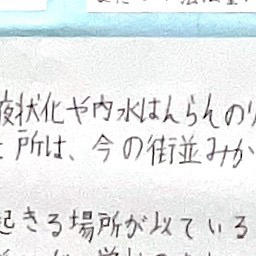 液状化や内水はんらんの
所は、今の街並みか
起きる場所が以ている